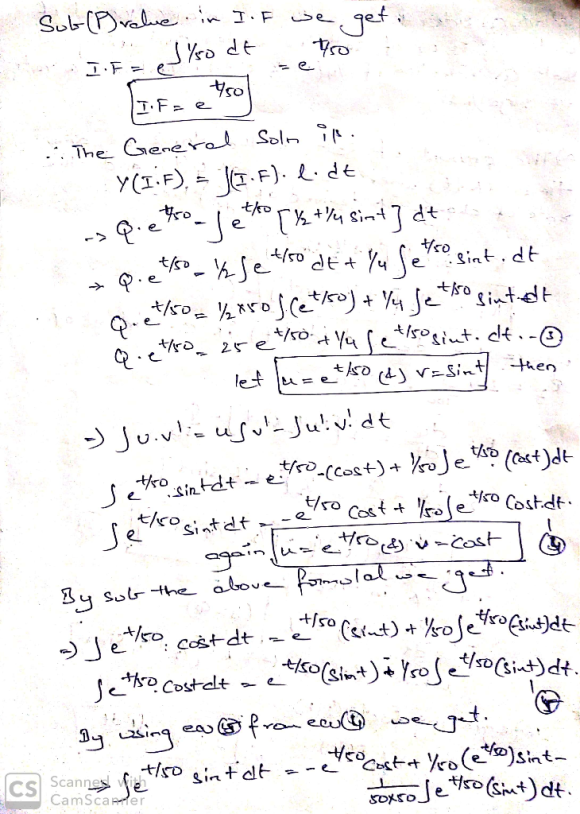 Sub (P) value in I.F we get.
I.F = e^∫1/50 dt = e^t/50
I.F = e^t/50
∴ The General Soln is.
Y(I.F). = ∫(I.F). l. dt
→ Q.e^t/50 = ∫e^t/50 [1/2 + 1/4 sint] dt
→ Q.e^t/50 = 1/2 ∫e^t/50 dt + 1/4 ∫e^t/50 . sint . dt
Q.e^t/50 = 1/2 x 50 ∫(e^t/50) + 1/4 ∫e^t/50 sint dt
Q.e^t/50 = 25 e^t/50 + 1/4 ∫e^t/50 sint. dt. -- ③
let u = e^t/50 (&) v = sint then
⇒ ∫u.v' = u∫v' - ∫u'. v' dt
∫e^t/50 . sint dt = e^t/50 -(cost) + 1/50 ∫e^t/50 (cost) dt
∫e^t/50 sint dt = -e^t/50 cost + 1/50 ∫e^t/50 cost.dt. ④
again u = e^t/50 (&) v = cost
By sub the above formulal we get.
⇒ ∫e^t/50 . cost dt. = e^t/50 (sint) + 1/50 ∫e^t/50 (-sint) dt
∫e^t/50 . cost dt = e^t/50 (sint) + 1/50 ∫e^t/50 (sint) dt. ⑤
By using eqn ⑤ from eqn ④ we get.
⇒ ∫e^t/50 sint dt = -e^t/50 cost + 1/50 (e^t/50) sint -
1/50x50 ∫e^t/50 (sint) dt.
CS Scanned with
CamScanner